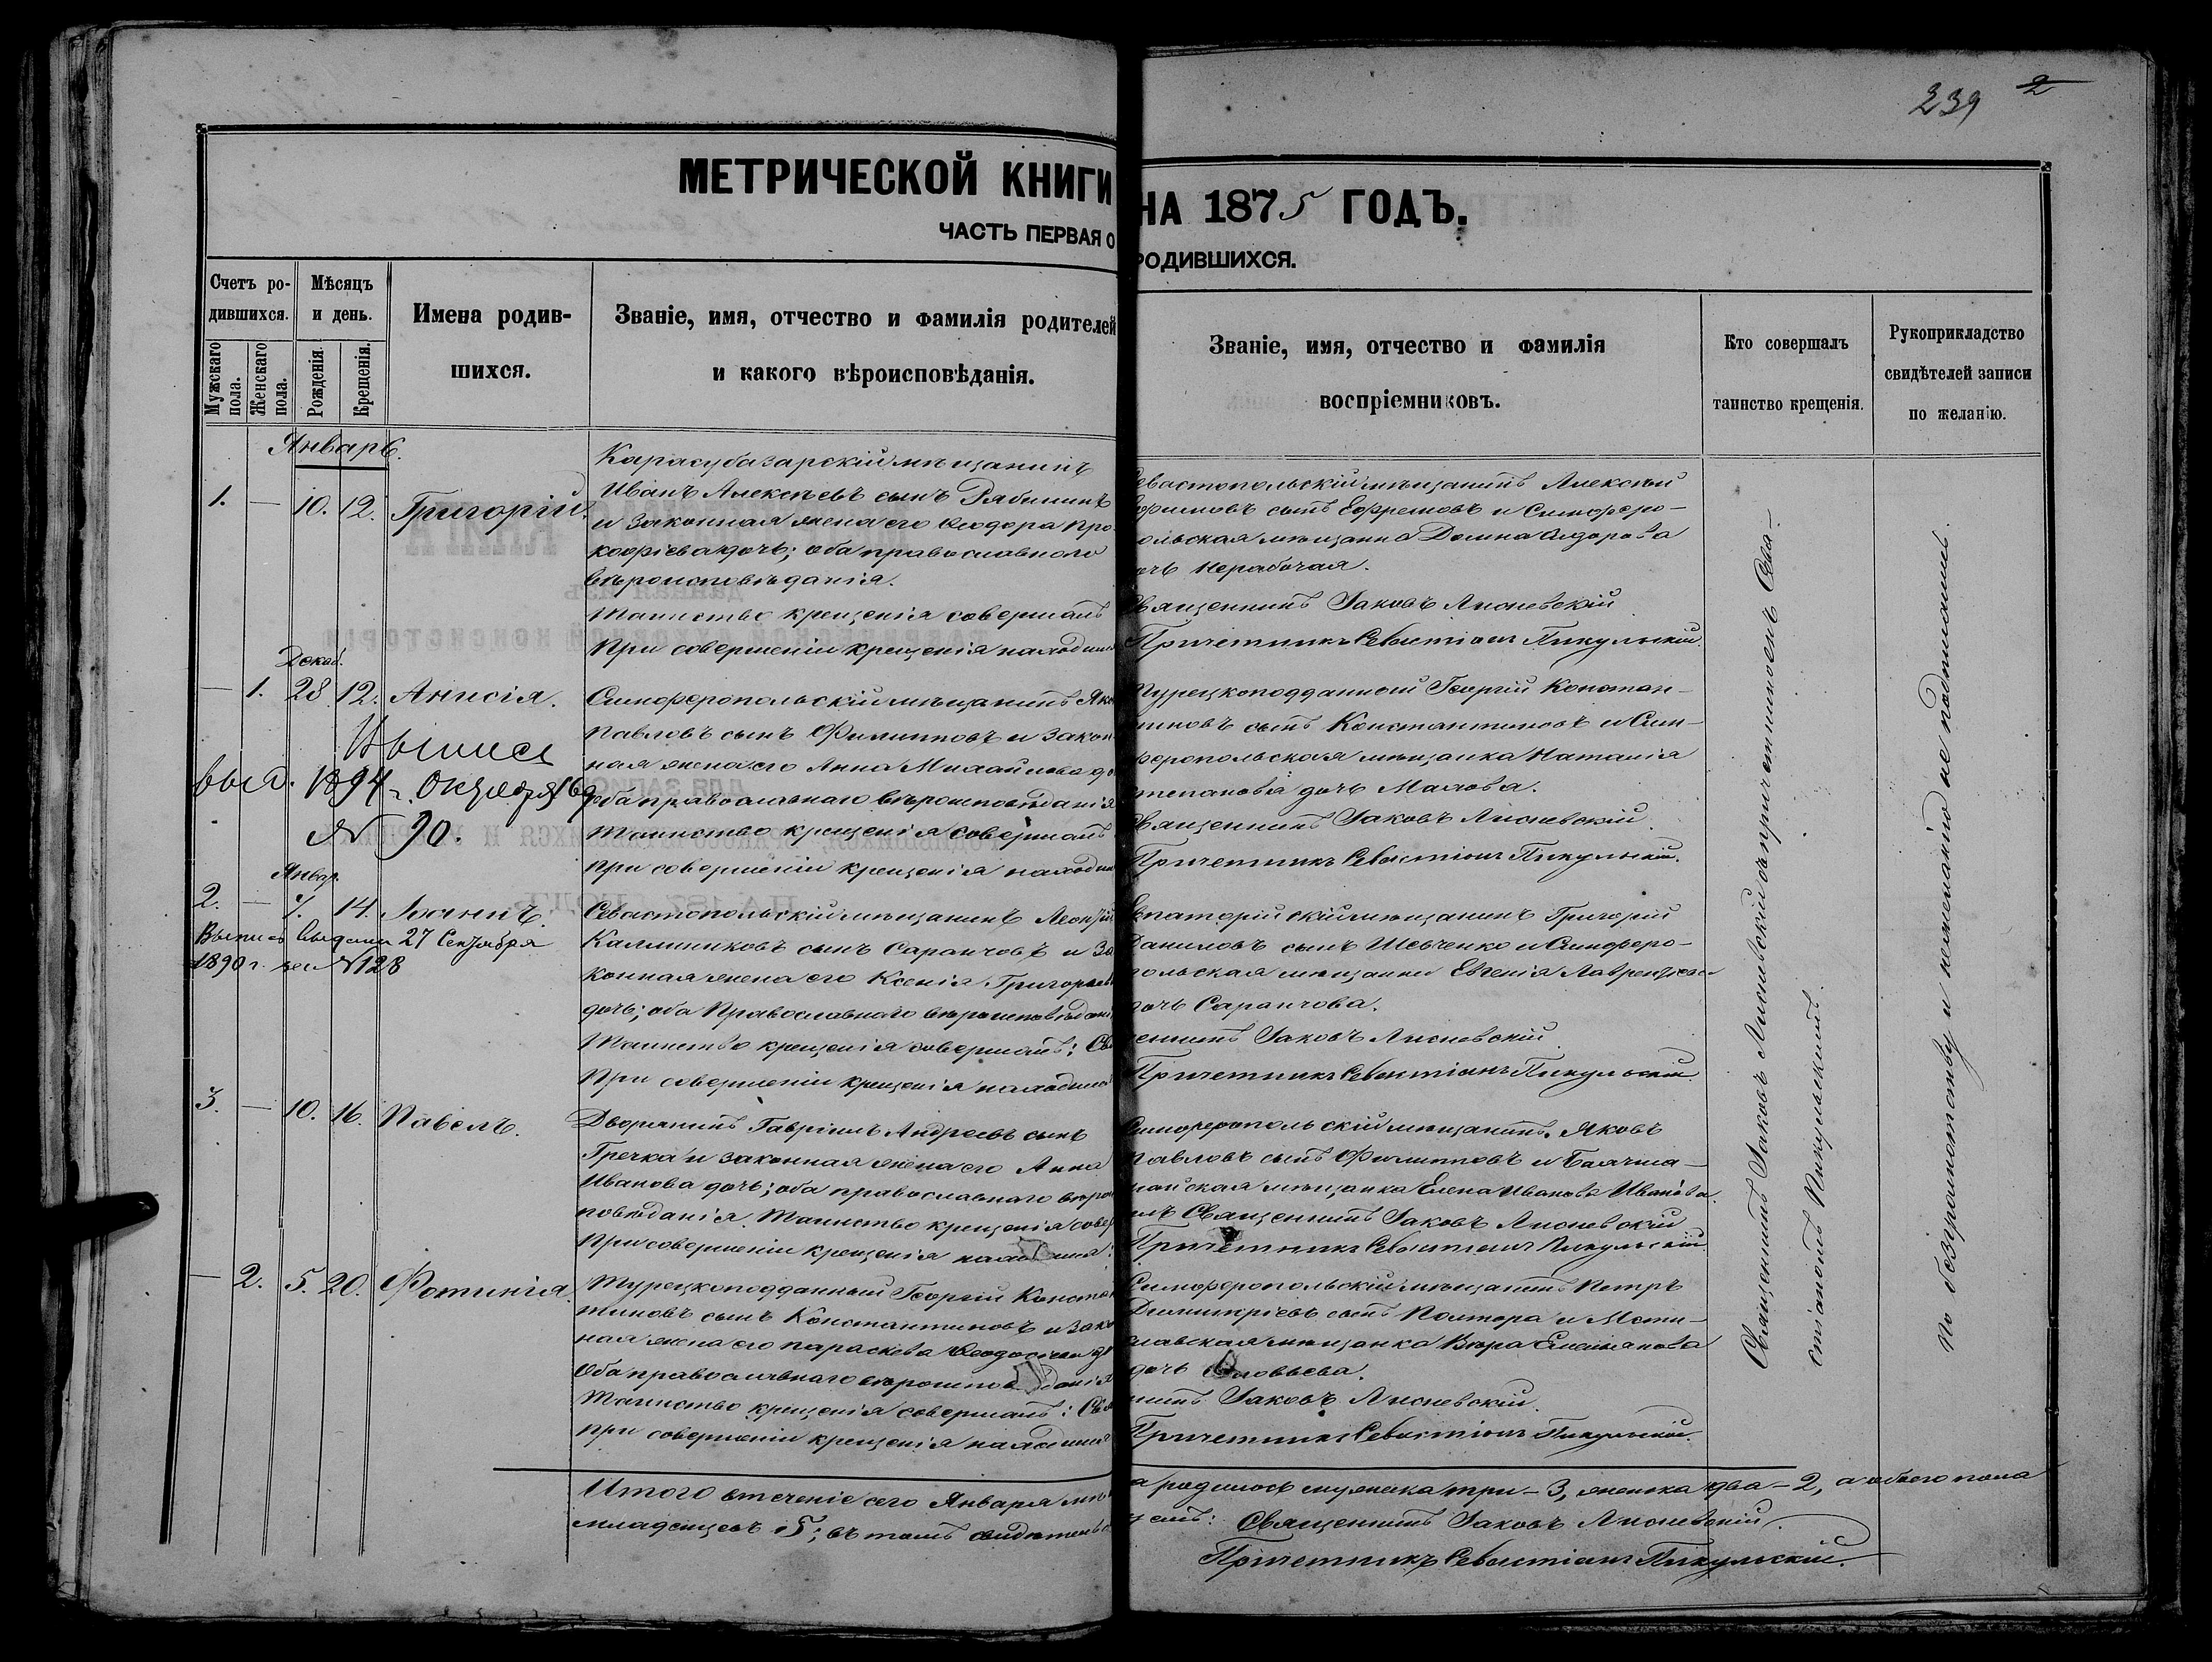 239 2
МЕТРИЧЕСКОЙ КНИГИ НА 1875 ГОДЪ.
ЧАСТЬ ПЕРВАЯ О РОДИВШИХСЯ.
Счетъ ро-
дившихся.
Мужскаго пола.
Женскаго пола.
Мѣсяцъ
и день.
Рожденія.
Крещенія.
Имена родив-
шихся.
Званіе, имя, отчество и фамилія родителей
и какого вѣроисповѣданія.
Званіе, имя, отчество и фамилія
воспріемниковъ.
Кто совершалъ
таинство крещенія.
Рукоприкладство
свидѣтелей записи
по желанію.
Январь.
1. — 10. 12. Григорій.
Карасубазарскій мѣщанинъ
Иванъ Алексѣевъ сынъ Рябининъ
и законная жена его Ѳеодора Про-
кофіева дочь; оба православного
вѣроисповѣданія.
Таинство крещенія совершалъ
При совершеніи крещенія находился
Севастопольскій мѣщанинъ Алексѣй
сынъ Ефремовъ и Симферо-
польская мѣщанка Домна
дочь Нерабочая.
Священникъ Іаковъ Лисневскій
Причетникъ Севастіанъ Пикульскій.
Декаб.
— 1. 28 12. Анисія.
Симферопольскій мѣщанинъ Яко
Павловъ сынъ Филипповъ и закон-
ная жена его Анна Михайлова до
оба православнаго вѣроисповѣданія
Таинство крещенія совершалъ
При совершеніи крещенія находил
Турецкоподданный Георгій Констан-
тиновъ сынъ Константиновъ и Сим-
феропольская мѣщанка Наталія
Степанова дочь Малова.
Священникъ Іаковъ Лисневскій.
Причетникъ Севастіанъ Пикульскій.
Выпись
выд. 1894 г. Октября 16
№ 90.
Январ.
2. — 7. 14. Іоаннъ.
Выпись выдана 27 Сентября
1890 г. за № 128
Севастопольскій мѣщанинъ Леонтій
Каллиниковъ сынъ Саранчовъ и за
конная жена его Ксенія Григорьев
дочь; оба Православнаго вѣроисповѣдані
Таинство крещенія совершалъ: Свя
При совершеніи крещенія находился
Евпаторійскій мѣщанинъ Григорій
Даниловъ сынъ Шевченко и Симферо-
польская мѣщанка Евгенія Лаврентьева
дочь Саранчова.
щенникъ Іаковъ Лисневскій
Причетникъ Севастіанъ Пикульскій.
3. — 10. 16. Павелъ.
Дворянинъ Гавріилъ Андреевъ сынъ
Гречка и законная жена его Анна
Иванова дочь; оба православнаго вѣроис
повѣданія. Таинство крещенія совер
При совершеніи крещенія находился:
Симферопольскій мѣщанинъ Яковъ
Павловъ сынъ Филипповъ и
мѣщанка Елена Иванова Иванова.
алъ Священникъ Іаковъ Лисневскій
Причетникъ Севастіанъ Пикульскій
— 2. 5. 20. Фотинія.
Турецкоподданный Георгій Констан
тиновъ сынъ Константиновъ и зако
ная жена его Параскева Ѳеодосіева д
Оба православнаго вѣроисповѣданія
Таинство крещенія совершалъ: Свя
при совершеніи крещенія находился
Симферопольскій мѣщанинъ Петръ
Димитріевъ сынъ Полтора и Мсти-
славская мѣщанка Вѣра Емельянова
дочь Соловьева.
никъ Іаковъ Лисневскій.
Причетникъ Севастіанъ Пикульскій.
Священникъ Іаковъ Лисневскій съ причетникомъ Сева-
стіаномъ Пикульскимъ.
По безграмотству и нежеланію не подписались.
Итого втеченіе сего Января мѣ а родилось мужеска три – 3, женска два – 2, а обоего пола
младенцевъ 5; въ томъ свидѣтельс уемъ: Священникъ Іаковъ Лисневскій.
Причетникъ Севастіанъ Пикульскій.